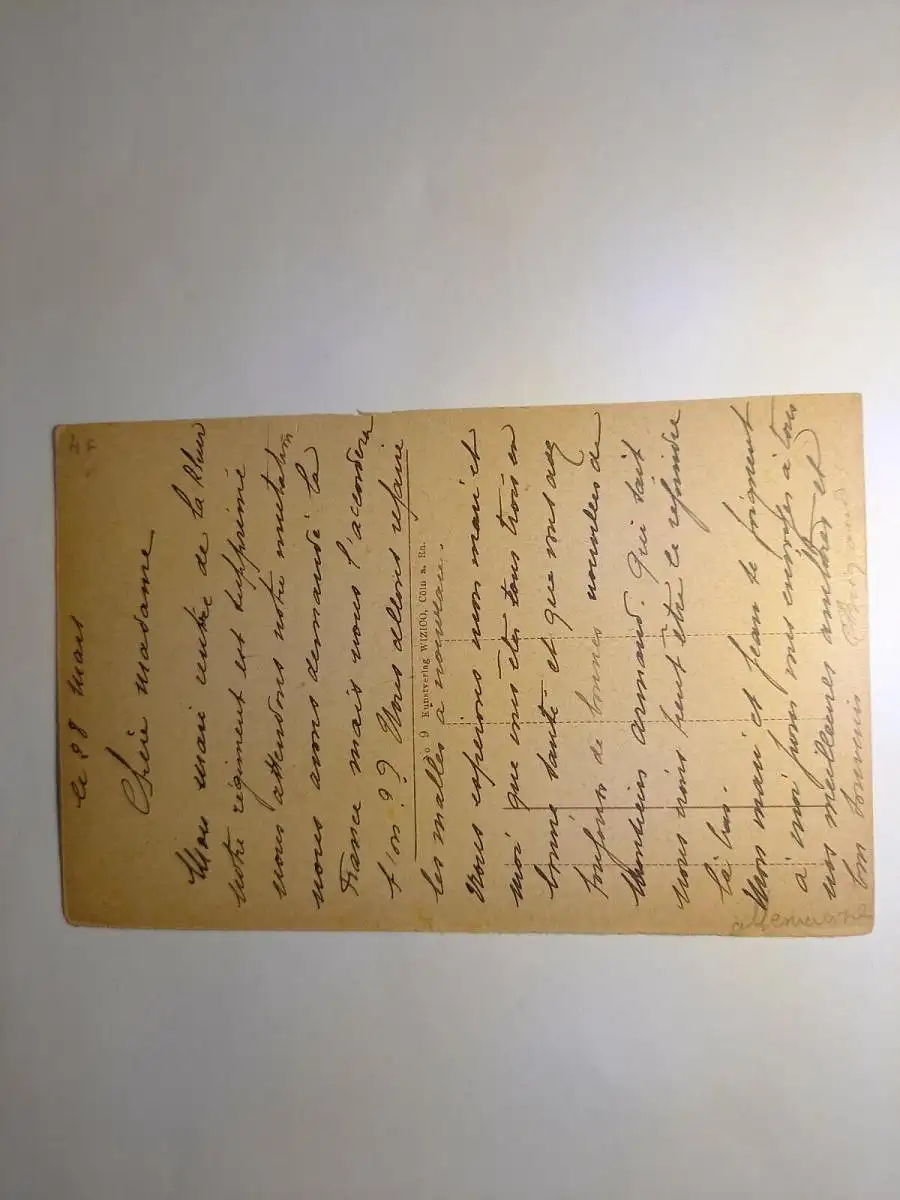 le 28 mars
Chère Madame
Mon mari rentre de la Rhur
notre régiment est supprimé
nous attendons notre mutation
nous avons demandé la
France mais nous l'accordera
t'on ?? Nous allons refaire
les malles à nouveau.
No 9 Kunstverlag WIZICO, Cöln a. Rh.
Nous espérons mon mari et
moi que vous êtes tous trois en
bonne santé et que vous avez
toujours de bonnes nouvelles de
Monsieur Armand. Qui sait
nous irons peut être le rejoindre
là bas.
Mon mari et Jean se joignent
à moi pour vous envoyer à tous
nos meilleures amitiés et
bon souvenir
allemagne